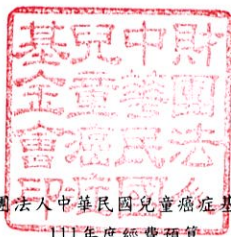 財團法人
中華民國
兒童癌症
基金會印
團法人中華民國兒童癌症基
111年度經費預算